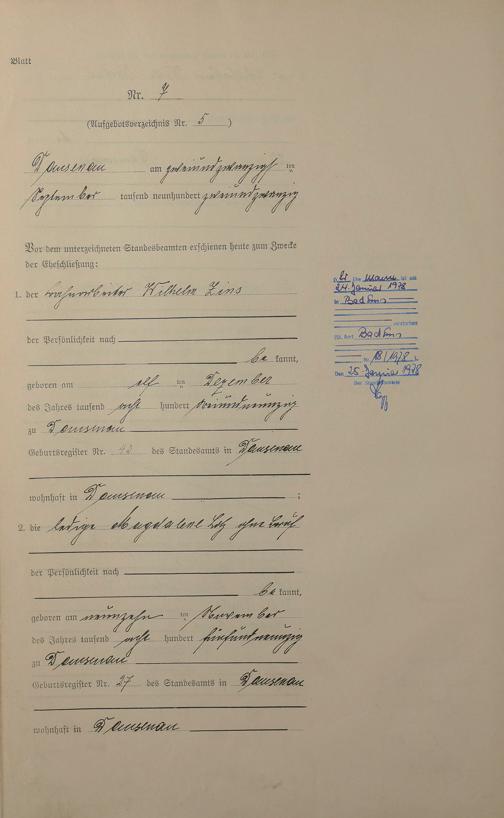 Blatt
Nr. 7
(Aufgebotsverzeichnis Nr. 5 )
Dausenau am zweiundzwanzigsten
September tausend neunhundert zweiundzwanzig
Vor dem unterzeichneten Standesbeamten erschienen heute zum Zwecke
der Eheschließung:
1. der Bahnarbeiter Wilhelm Zins
der Persönlichkeit nach
be kannt,
geboren am elf ten Dezember
des Jahres tausend acht hundert dreiundneunzig
zu Dausenau
Geburtsregister Nr. 43 des Standesamts in Dausenau
wohnhaft in Dausenau ;
2. die ledige Magdalene ohne Beruf
der Persönlichkeit nach
be kannt,
geboren am neunzehn ten November
des Jahres tausend acht hundert fünfundneunzig
zu Dausenau
Geburtsregister Nr. 27 des Standesamts in Dausenau
wohnhaft in Dausenau
Der Mann ist am
24. Januar 1978
in Bad Ems
verstorben
St. Amt Bad Ems
Nr. 18/1978
Den 25. Januar 1978
Der Standesbeamte